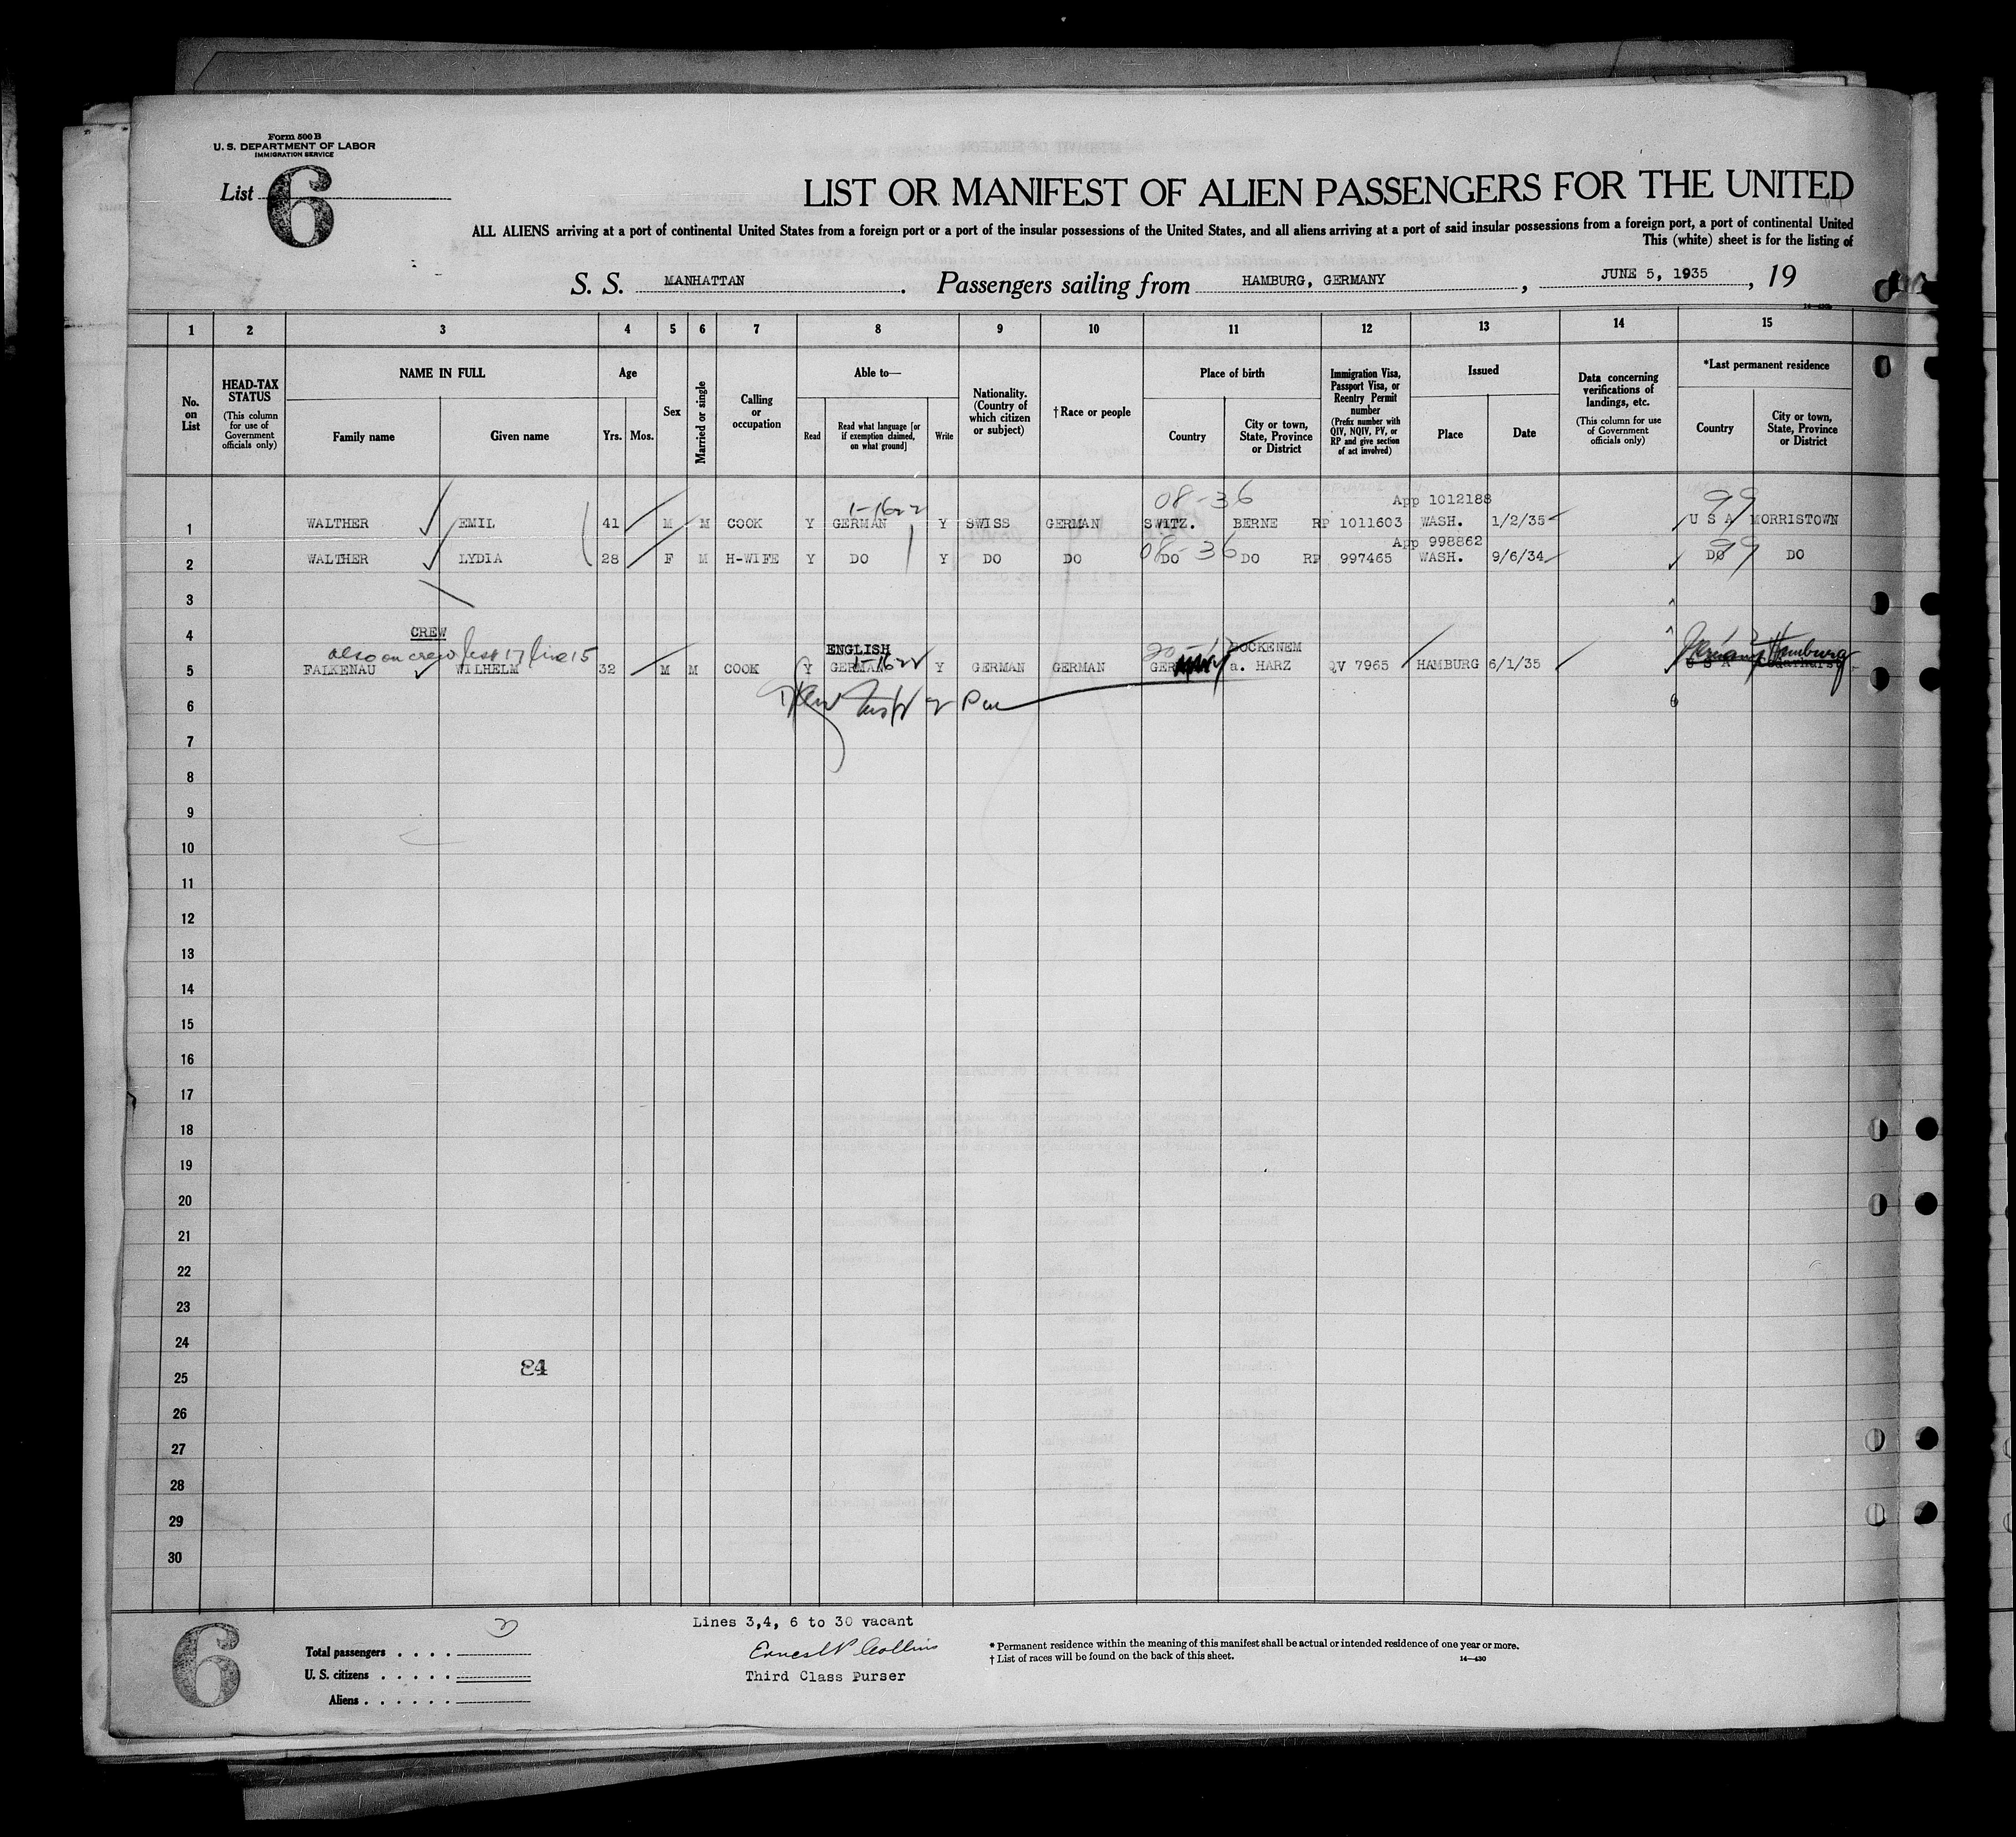 Form 500 B
U. S. DEPARTMENT OF LABOR
IMMIGRATION SERVICE
List 6
LIST OR MANIFEST OF ALIEN PASSENGERS FOR THE UNITED
ALL ALIENS arriving at a port of continental United States from a foreign port or a port of the insular possessions of the United States, and all aliens arriving at a port of said insular possessions from a foreign port, a port of continental United
This (white) sheet is for the listing of
S. S. MANHATTAN . Passengers sailing from HAMBURG, GERMANY , JUNE 5, 1935 , 19
14—430
1 2 3 4 5 6 7 8 9 10 11 12 13 14 15
No. on List
HEAD-TAX STATUS (This column for use of Government officials only)
NAME IN FULL
Family name
Given name
Age
Yrs. Mos.
Sex
Married or single
Calling or occupation
Able to—
Read
Read what language [or if exemption claimed, on what ground]
Write
Nationality. (Country of which citizen or subject)
† Race or people
Place of birth
Country
City or town, State, Province or District
Immigration Visa, Passport Visa, or Reentry Permit number (Prefix number with QIV, NQIV, PV, or RP and give section of act involved)
Issued
Place
Date
Data concerning verifications of landings, etc. (This column for use of Government officials only)
*Last permanent residence
Country
City or town, State, Province or District
1-1622 08-36 App 1012188 99
1 WALTHER EMIL 41 M M COOK Y GERMAN Y SWISS GERMAN SWITZ. BERNE RP 1011603 WASH. 1/2/35 U S A MORRISTOWN
08-36 App 998862 99
2 WALTHER LYDIA 28 F M H-WIFE Y DO Y DO DO DO DO RP 997465 WASH. 9/6/34 DO DO
3
4 CREW
also on crew list 17 line 15 ENGLISH 1-1622 BOCKENEM Germany Hamburg
5 FALKENAU WILHELM 32 M M COOK Y GERMAN Y GERMAN GERMAN GER a. HARZ QV 7965 HAMBURG 6/1/35 U S A
6
7
8
9
10
11
12
13
14
15
16
17
18
19
20
21
22
23
24
84
25
26
27
28
29
30
6
Lines 3,4, 6 to 30 vacant
Total passengers
U. S. citizens
Aliens
Ernest P Collins
Third Class Purser
* Permanent residence within the meaning of this manifest shall be actual or intended residence of one year or more.
† List of races will be found on the back of this sheet.
14—430